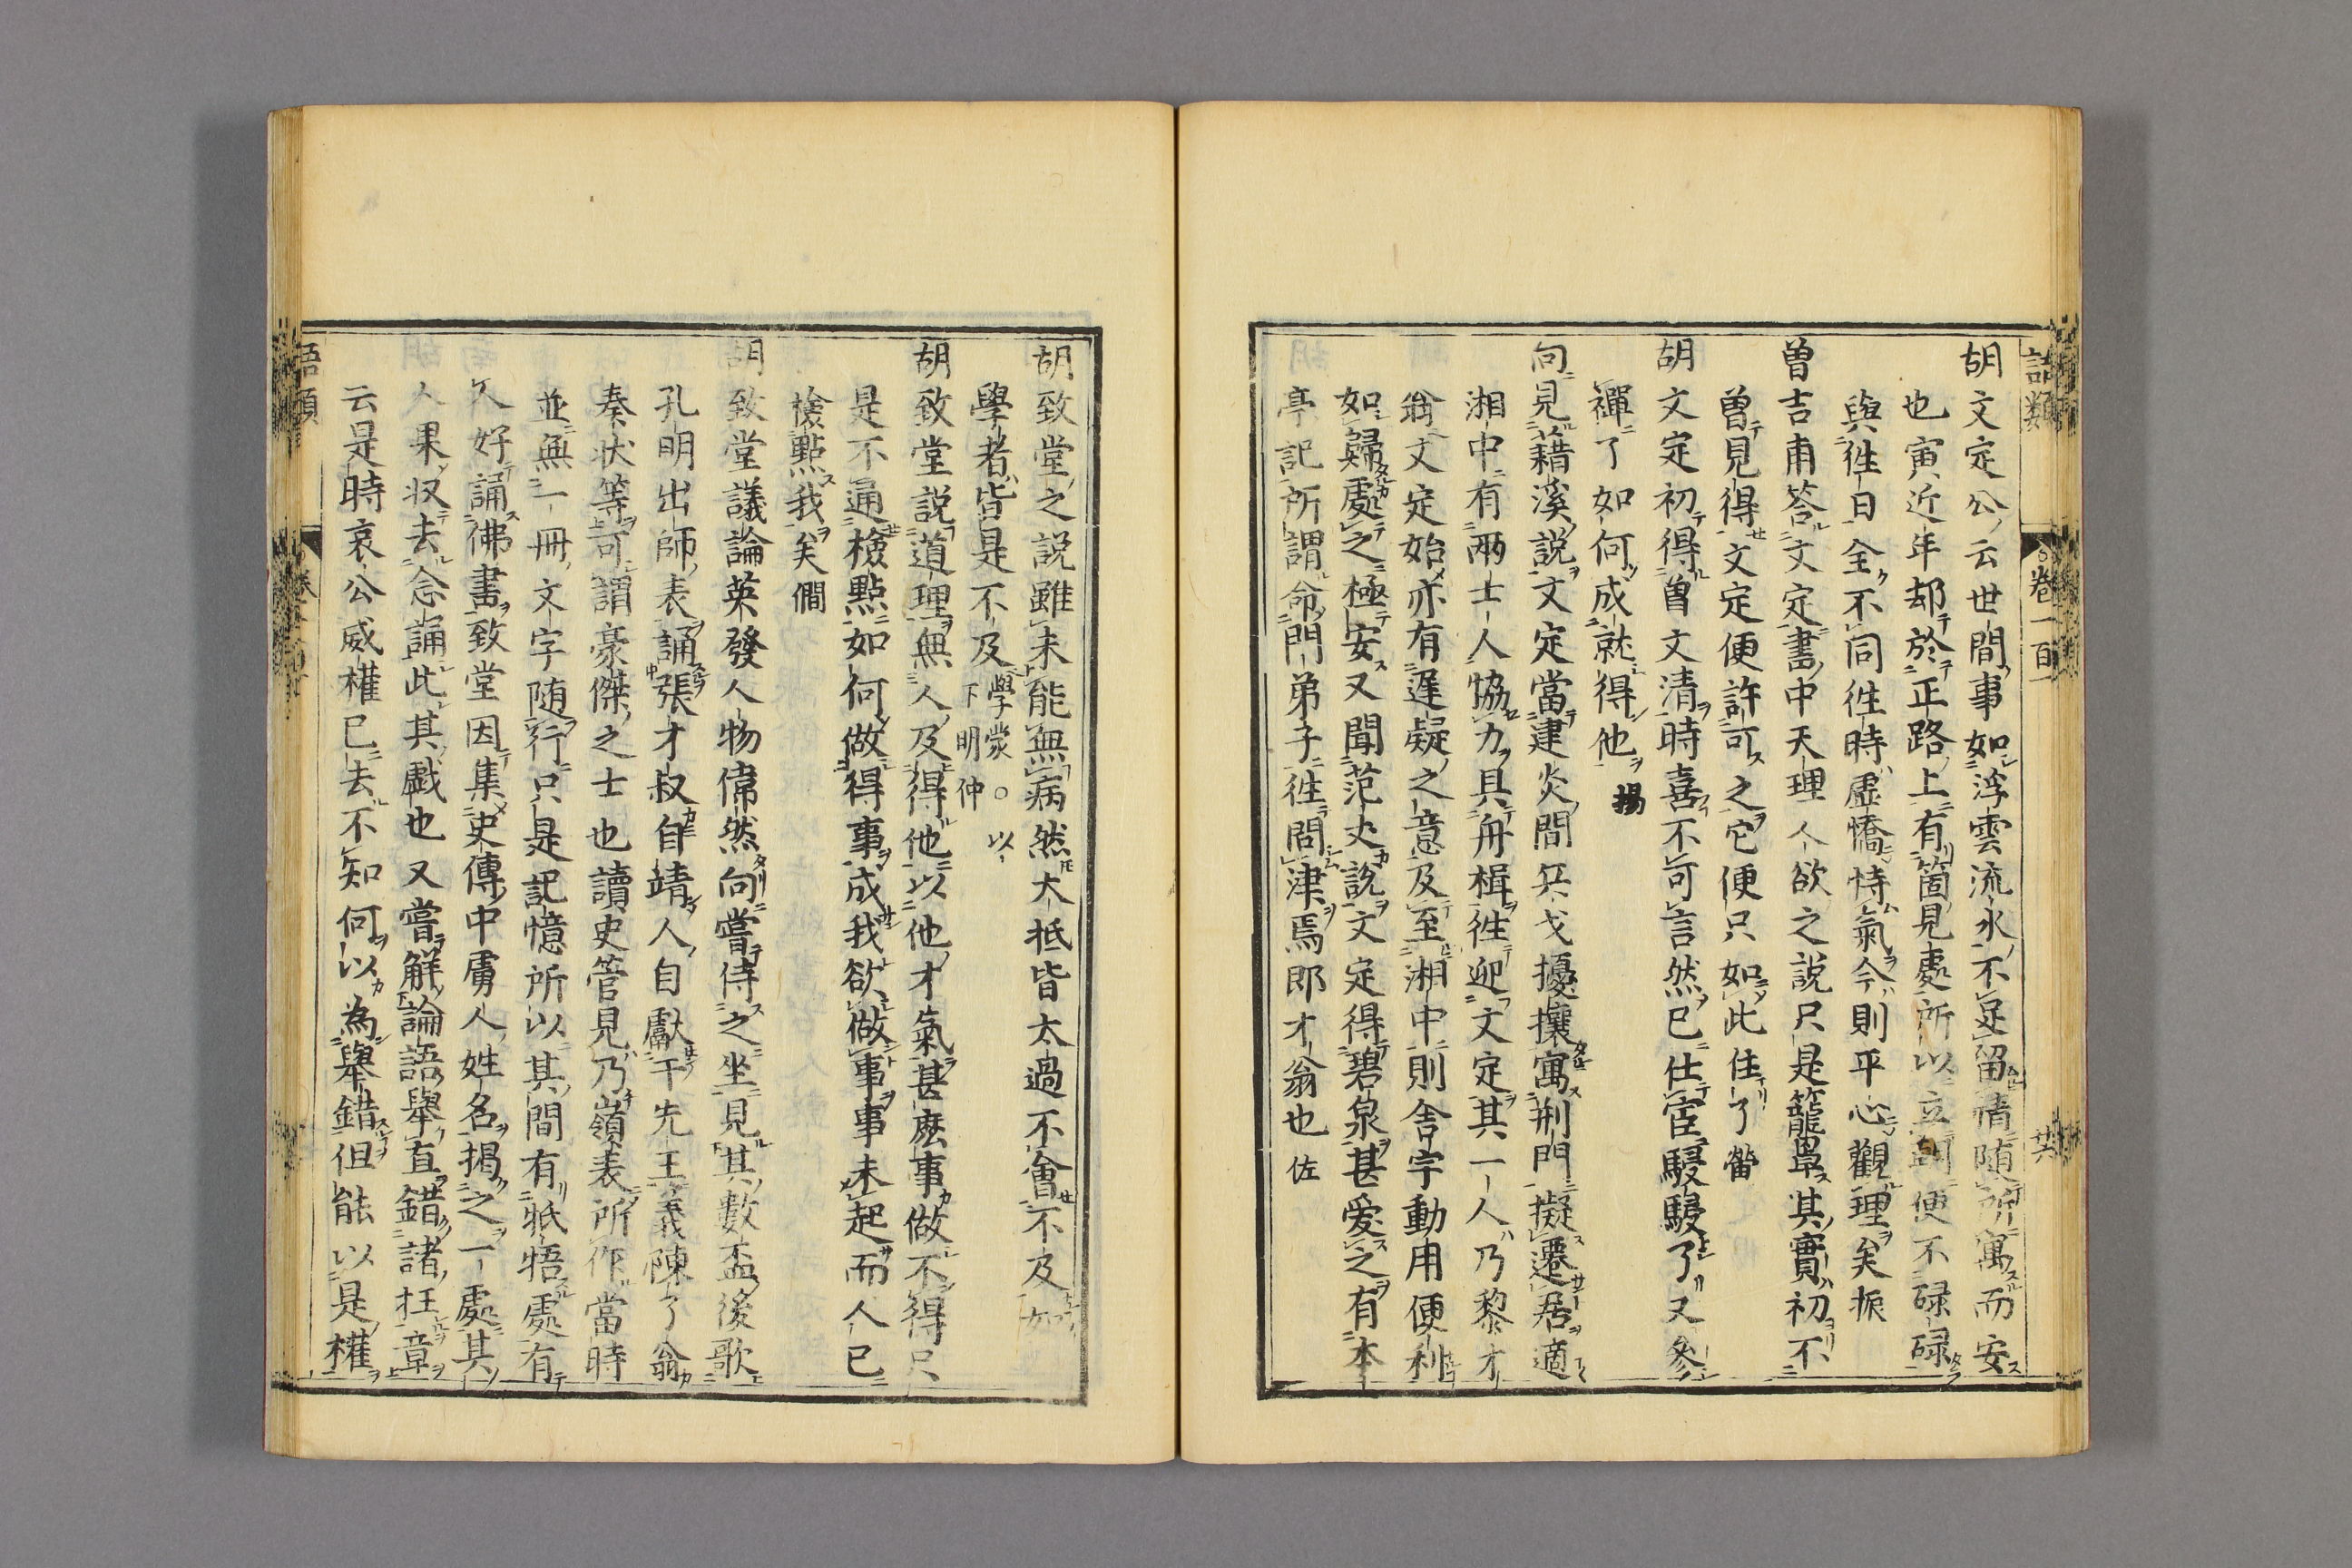 語類
卷一百一
廿六
胡文定公云世間事如浮雲流水不足留情随所寓而安
也寅近年却於正路上有箇見處所以立朝便不碌碌
與徃日全不同徃時虚憍恃氣今則平心觀理矣振
曽吉甫荅文定書中天理人欲之說只是籠罩其實初不
曽見得文定便許可之它便只如此住了㽦
胡文定初得曽文清時喜不可言然已仕宦駸駸了又參
禪了如何成就得他揚
向見藉溪說文定當建炎間兵戈擾攘寓荆門擬遷居適
湘中有兩士人協力具舟楫徃迎文定其一人乃黎才
翁文定始亦有遅疑之意及至湘中則舎宇動用便利
如歸處之極安又聞范丈說文定得碧泉甚愛之有本
亭記所謂命門弟子徃問津焉即才翁也佐
胡致堂之說雖未能無病然大抵皆太過不會不及如
學者皆是不及學蒙○以下明仲
胡致堂說道理無人及得他以他才氣甚麽事做不得只
是不通檢點如何做得事成我欲做事事未起而人已
檢點我矣僩
胡致堂議論英發人物偉然向嘗侍之坐見其數盃後歌
孔明出師表誦張才叔自靖人自獻于先王義陳了翁
奏状等可謂豪傑之士也讀史管見乃嶺表所作當時
並無一冊文字随行只是記憶所以其間有牴牾處有
人好誦佛書致堂因集史傳中虜人姓名揭之一處其
人果収去念誦此其戯也又嘗解論語舉直錯諸枉章
云是時哀公威權已去不知何以為舉錯但能以是權
語類